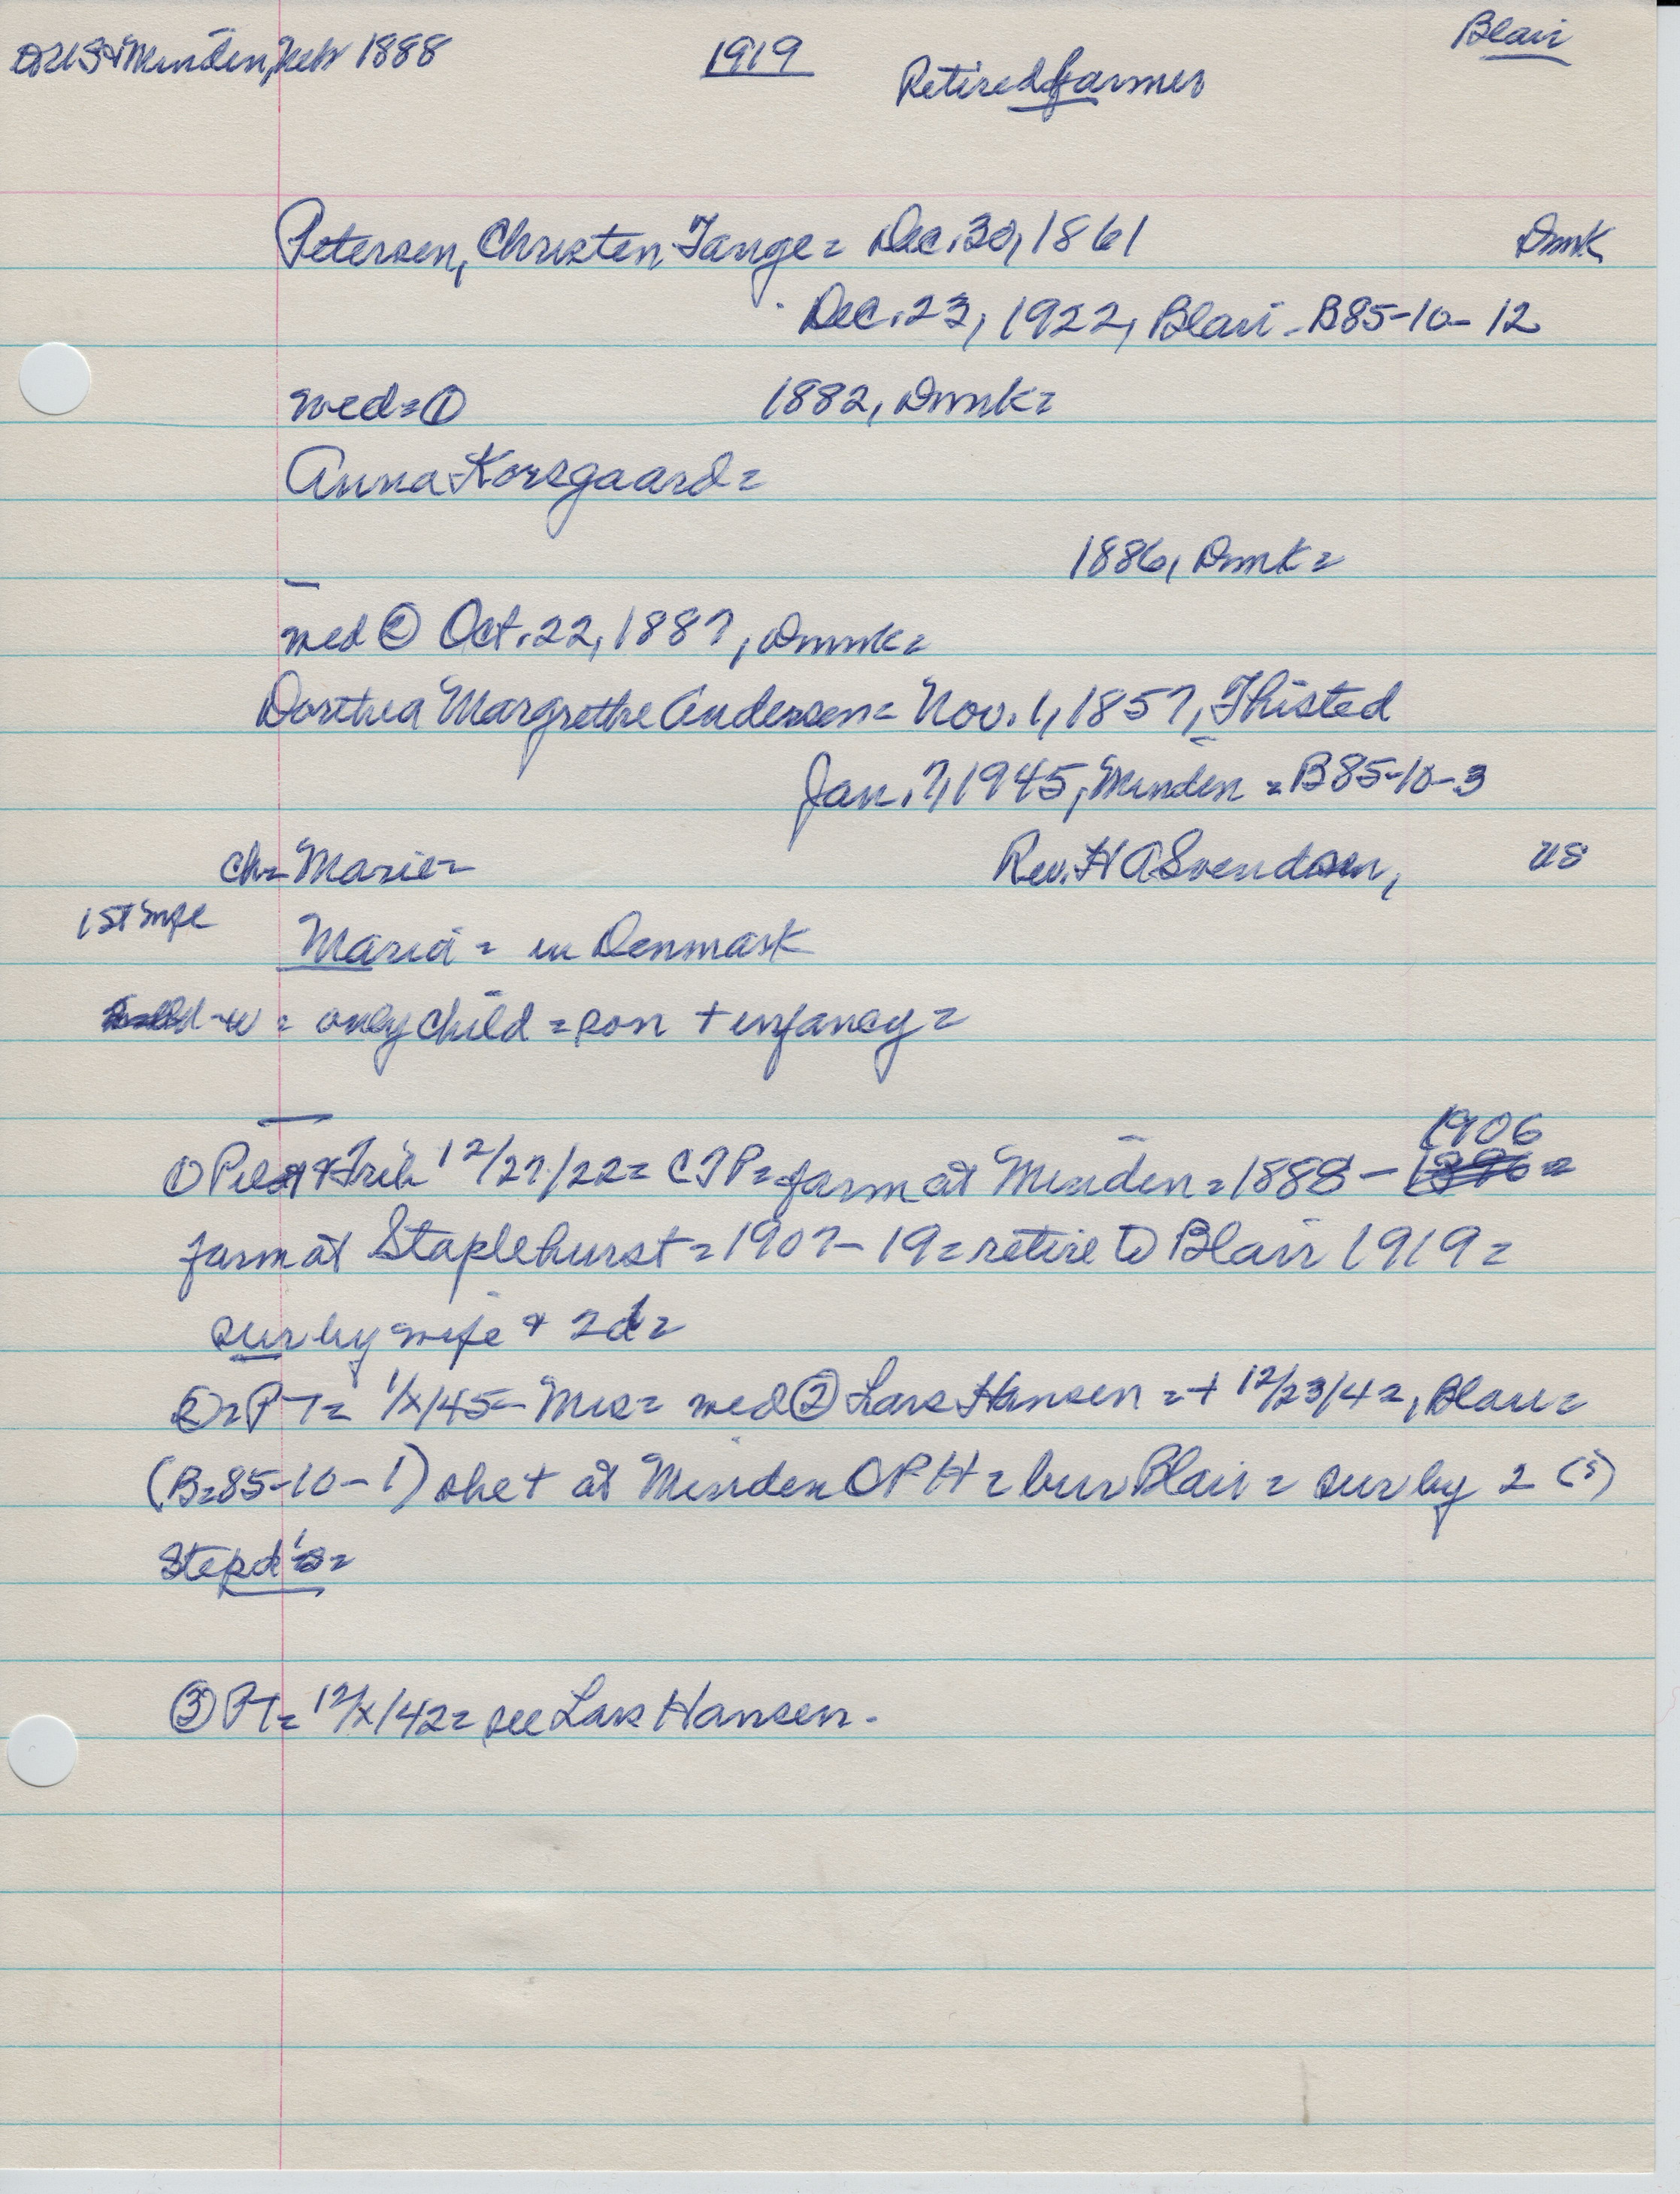 to US + Minden, Neb 1888
1919
Blair
Retired farmer
Petersen, Christen Tange = Dec. 30, 1861 Dmk
Dec. 23, 1922, Blair - B85-10-12
wed = ① 1882, Dnmk =
Anna Korsgaard =
1886, Dnmk =
wed ② Oct. 22, 1887, Dnmk =
Dorthea Margrethe Andersen = Nov. 1, 1857, Thisted
Jan. 7, 1945, Minden = B85-10-3
ch = Marie = Rev. H A Svendsen, US
1st wife
Maria = in Denmark
2d w = only child = son + infancy =
① Pilot & Trib 12/27/22 = CTP = farm at Minden = 1888 - 1906 =
farm at Staplehurst = 1907 - 19 = retire to Blair 1919 =
sur by wife & 2d =
② = PT = 1/X/45 - Mrs = wed ② Lars Hansen = + 12/23/42, Blair =
(B=85-10-1) she + at Minden OPH = bur Blair = sur by 2 (s)
stepd's =
③ PT = 12/X/42 = see Lars Hansen.